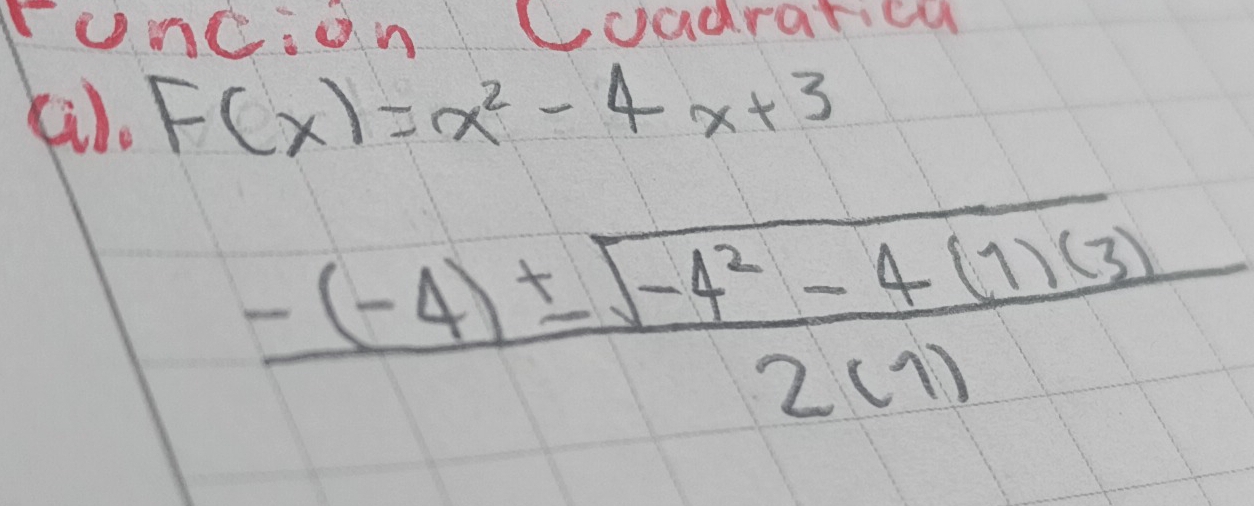 Función Cuadratica
a). F(x) = x² - 4x + 3
-(-4) ± √-4² - 4(1)(3)
2(1)